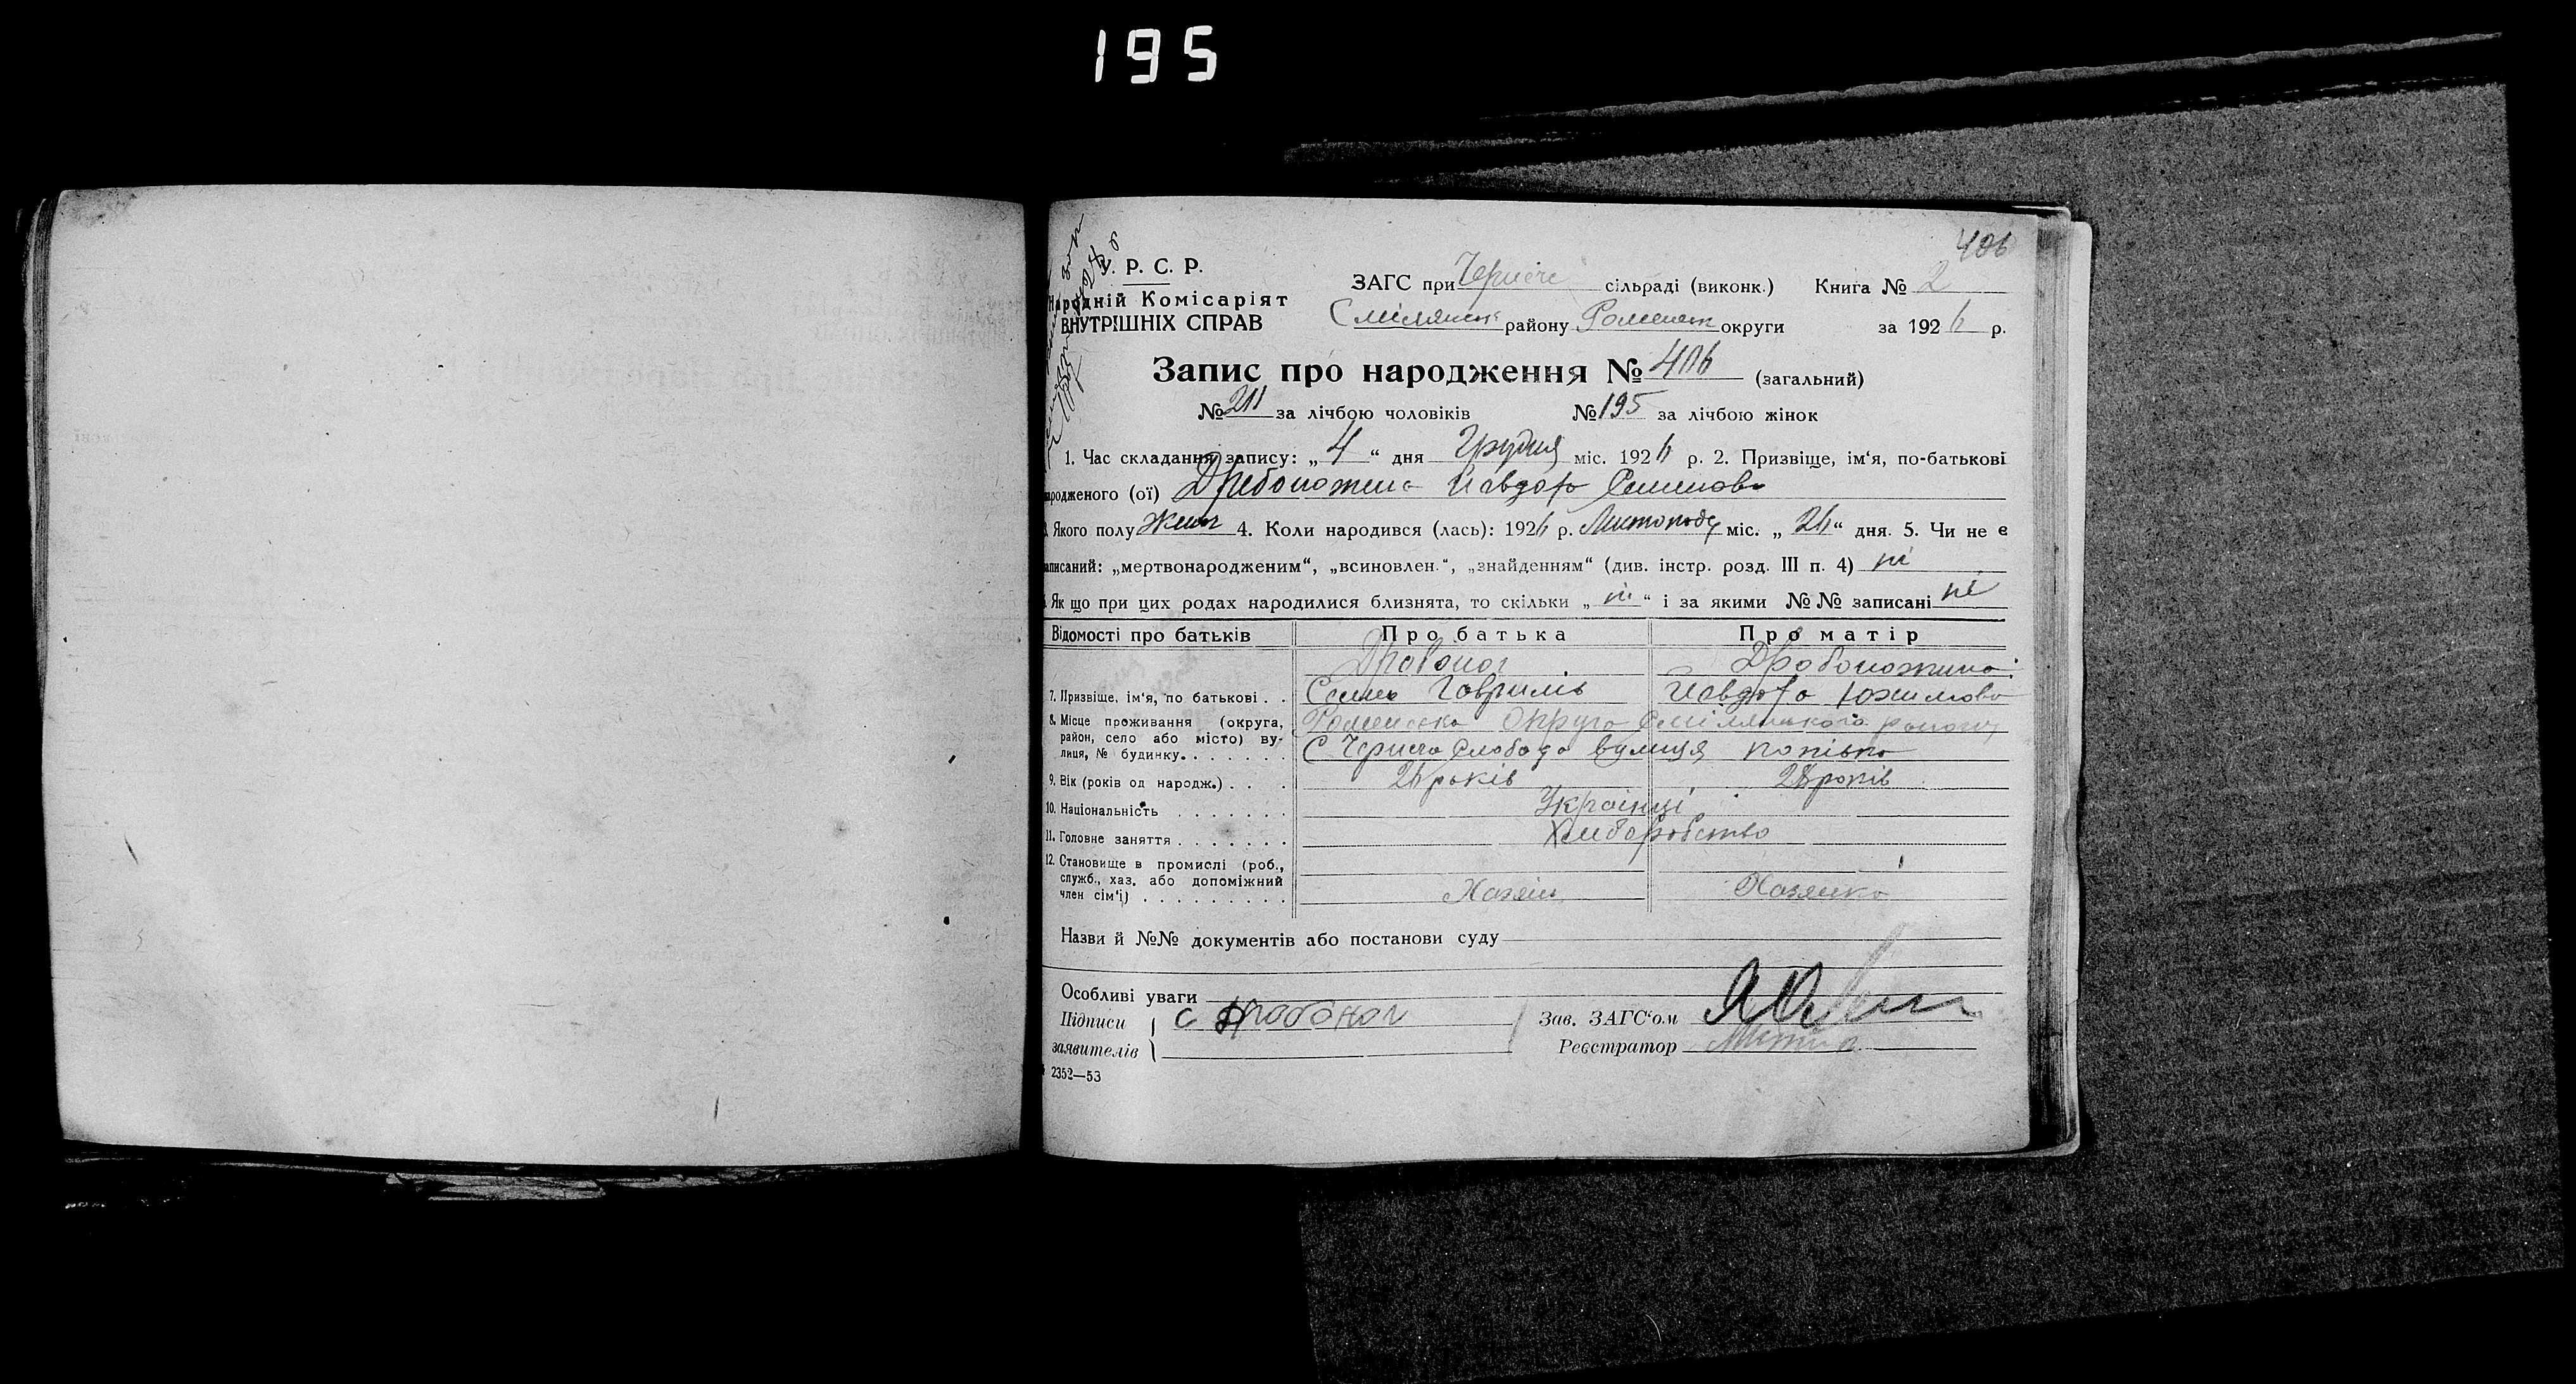 195
406
У. Р. С. Р.
Народній Комісаріят
ВНУТРІШНІХ СПРАВ
ЗАГС при Чернече сільраді (виконк.) Книга № 2
Смілянськ району Роменськ округи за 1926 р.
Запис про народження № 406 (загальний)
№ 211 за лічбою чоловіків № 195 за лічбою жінок
1. Час складання запису: „4“ дня Грудня міс. 1926 р. 2. Призвіще, ім‘я, по-батькові
народженого (ої) Дробоножина Иавдоха Семенова
3. Якого полу жіноч 4. Коли народився (лась): 1926 р. Листопаду міс. „26“ дня. 5. Чи не є
записаний: „мертвонародженим“, „всиновлен.“, „знайденням“ (див. інстр. розд. III п. 4) ні
6. Як що при цих родах народилися близнята, то скільки „ні“ і за якими №№ записані ні
Відомості про батьків Про батька Про матір
Дробоног Дробоножина
7. Призвіще, ім‘я, по батькові . . Семен Гаврилів Иавдоха Юхимова
8. Місце проживання (округа, район, село або місто) вулиця, № будинку. Роменська Округа Смілянського району
С Чернеча Слобода вулиця попівка
9. Вік (років од народж.) . . . 26 років 28 років
10. Національність Українці
11. Головне заняття Хліборобство
12. Становище в промислі (роб.,
служб., хаз. або допоміжний
член сім‘ї) Хазяїн Хазяйка
Назви й №№ документів або постанови суду
Особливі уваги
Підписи заявителів С Дробоног
Зав. ЗАГС‘ом
Реєстратор
2352—53